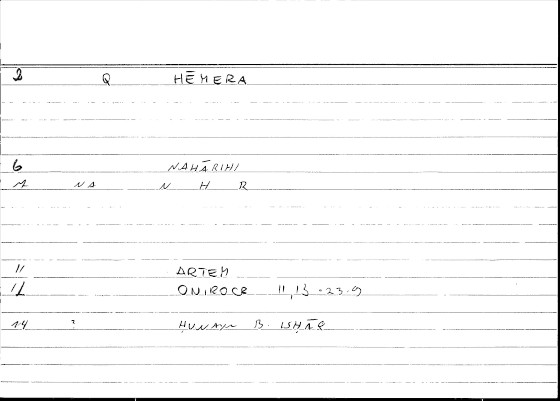 2 Q HĒMERA
6 NAHĀRIHI
M NA N H R
11 ARTEM
12 ONIROCR 11,13-23.9
14 ? ḤUNAYN B. ISḤĀQ